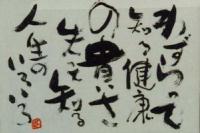 わずらって
知る健康
の貴いさ
失って知る
人生の
いろいろ